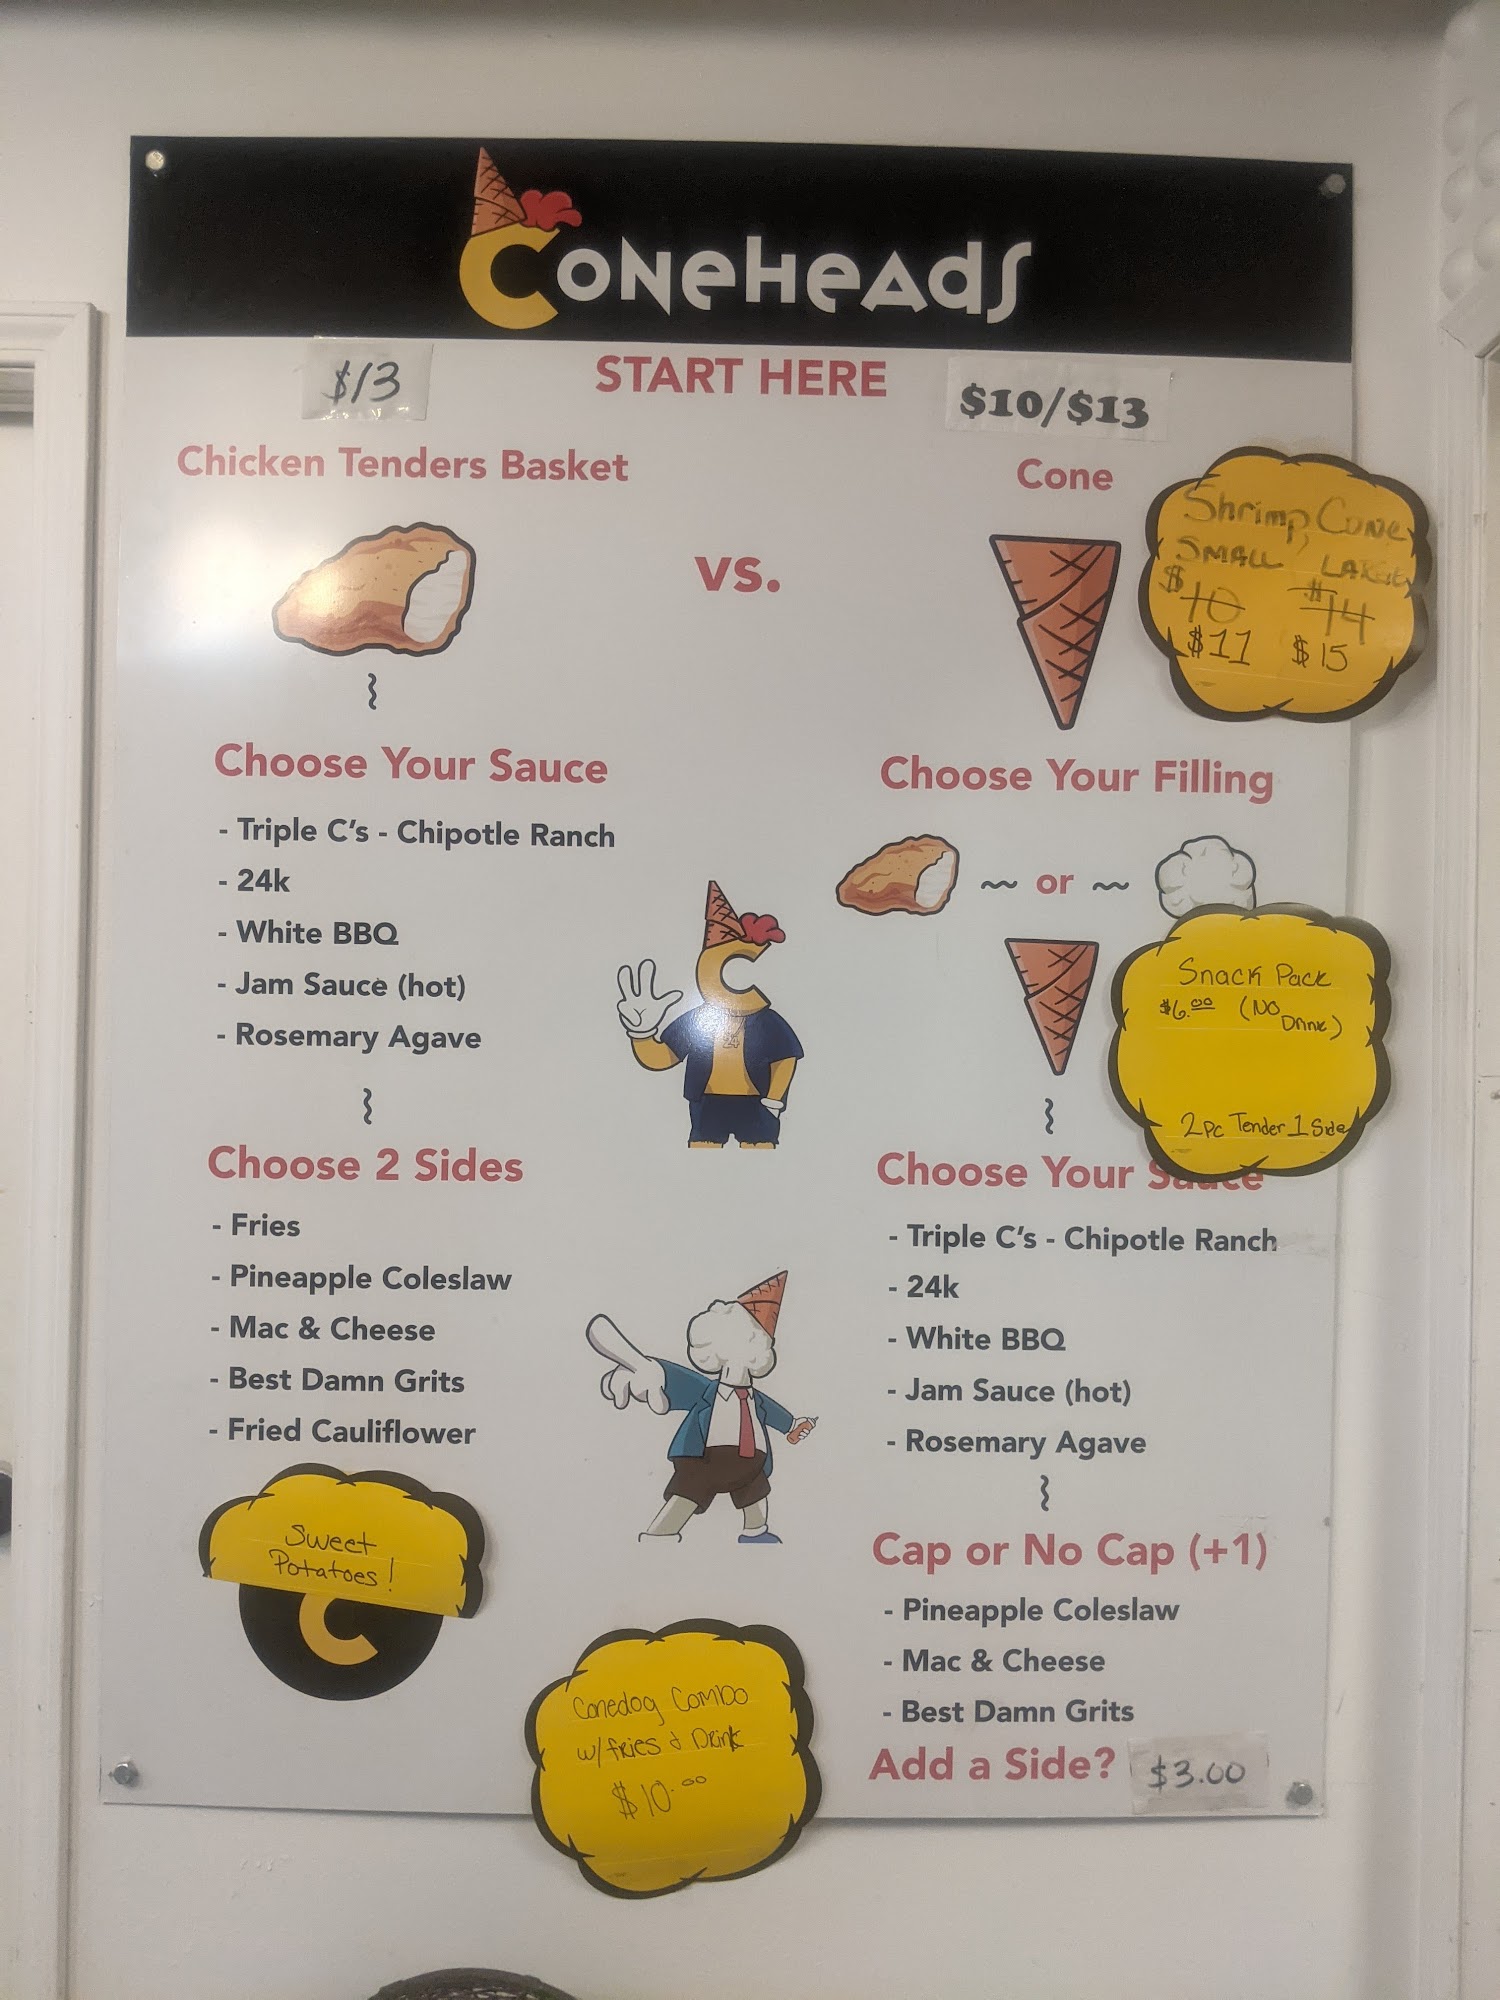 Coneheads
$13
START HERE
$10/$13
Chicken Tenders Basket
vs.
Cone
Shrimp Cone
SMALL, LARGE
$10 $14
$11 $15
Choose Your Sauce
- Triple C's - Chipotle Ranch
- 24k
- White BBQ
- Jam Sauce (hot)
- Rosemary Agave
Choose 2 Sides
- Fries
- Pineapple Coleslaw
- Mac & Cheese
- Best Damn Grits
- Fried Cauliflower
Sweet
Potatoes!
C
C
24
Conedog Combo
w/fries & Drink
$10.00
Choose Your Filling
or
Snack Pack
$6.00 (No
Drink)
2pc Tender 1 Side
Choose Your Sauce
- Triple C's - Chipotle Ranch
- 24k
- White BBQ
- Jam Sauce (hot)
- Rosemary Agave
Cap or No Cap (+1)
- Pineapple Coleslaw
- Mac & Cheese
- Best Damn Grits
Add a Side? $3.00